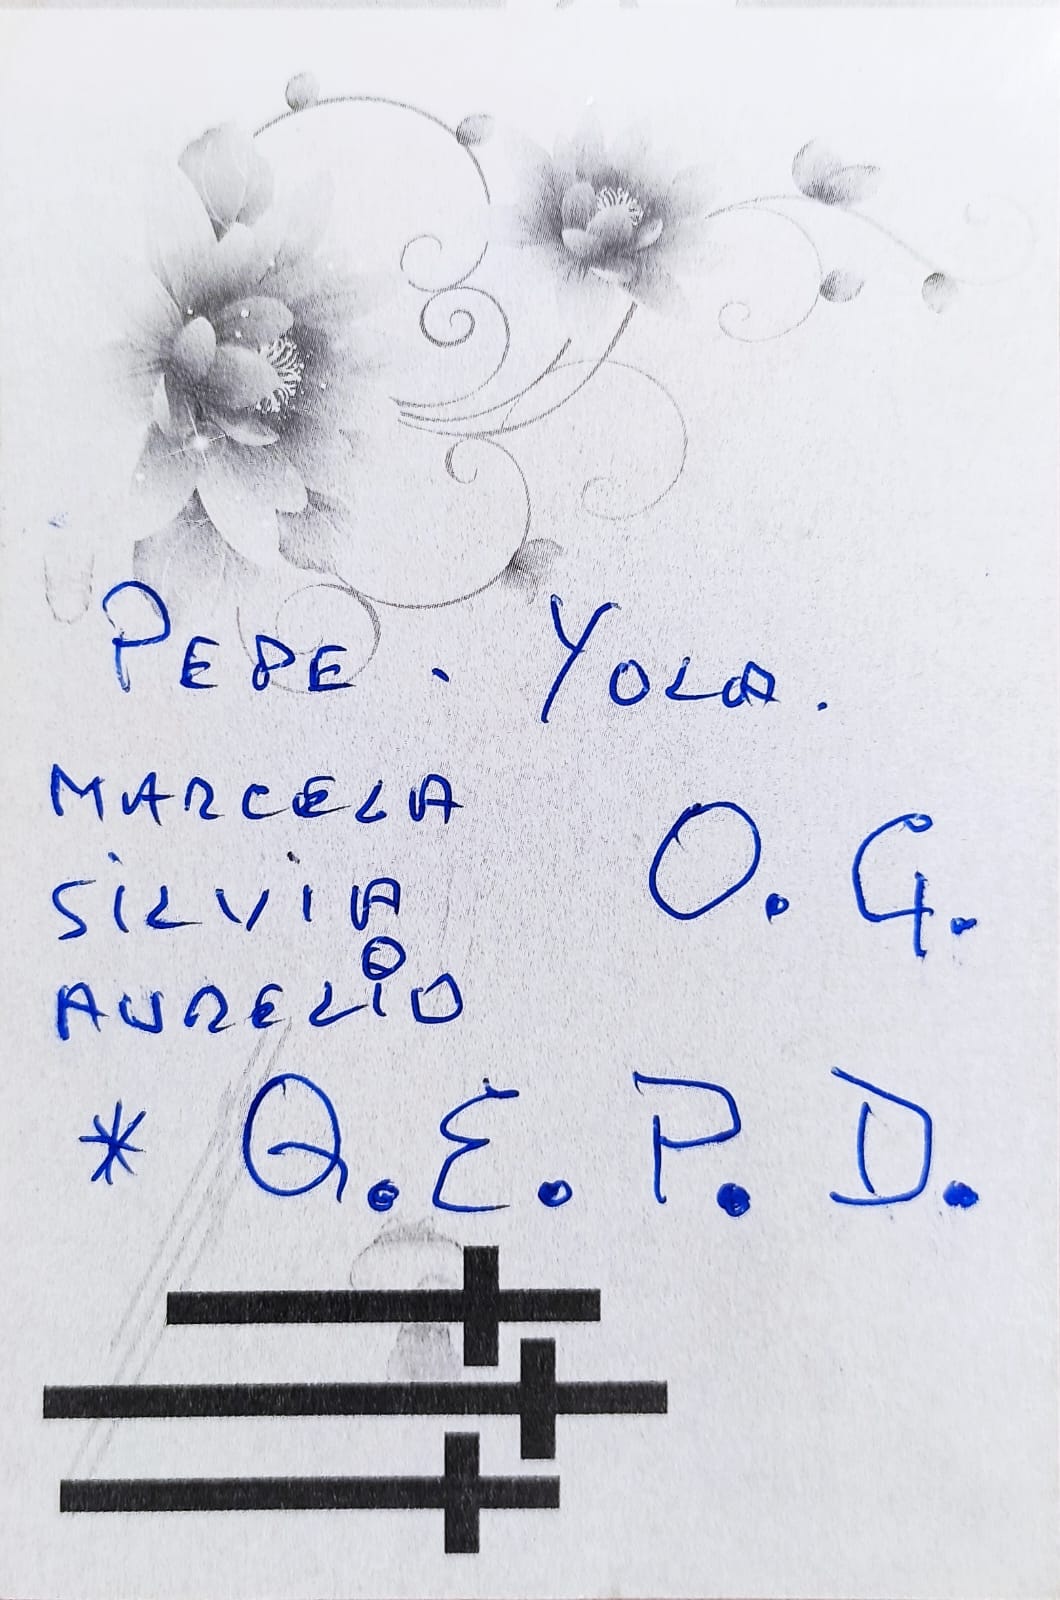 PEPE. YOLA.
MARCELA
SILVIA
O. G.
AURELIO
* Q.E.P.D.